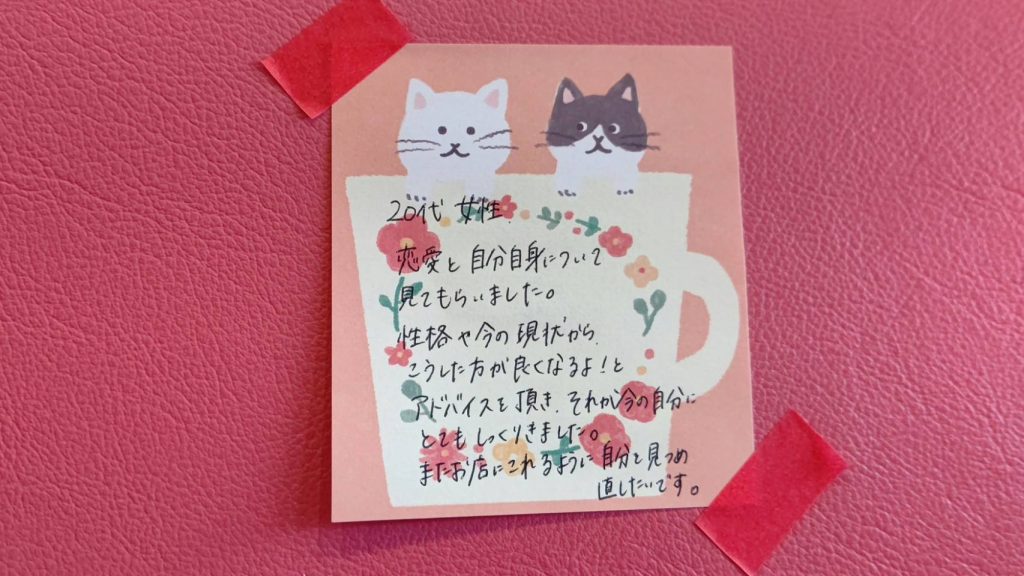 20代 女性.
恋愛と自分自身について
見てもらいました。
性格や今の現状から、
こうした方が良くなるよ!と
アドバイスを頂き、それが今の自分に
とてもしっくりきました。
またお店にこれるように自分を見つめ
直したいです。